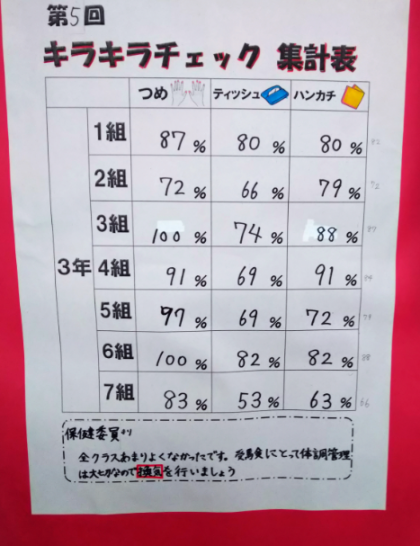 第5回
キラキラチェック 集計表
つめ ティッシュ ハンカチ
3年
1組 87% 80% 80%
2組 72% 66% 79%
3組 100% 74% 88%
4組 91% 69% 91%
5組 97% 69% 72%
6組 100% 82% 82%
7組 83% 53% 63%
保健委員より
全クラスあまりよくなかったです。受験生にとって体調管理
は大切なので換気を行いましょう